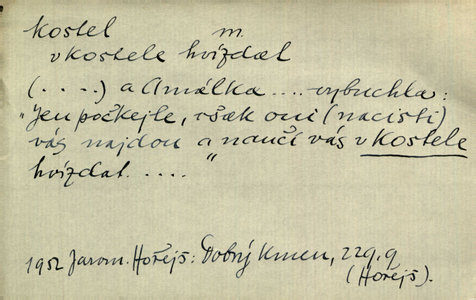 kostel m.
v kostele hvízdat
(. . - .) a Amálka .... vybuchla:
"Jen počkejte, však oni (nacisti)
vás najdou a naučí vás v kostele
hvízdat. . . . . "
1952 Jarom. Hořejš: Dobrý kmen, 229, 9
(Hořejš).